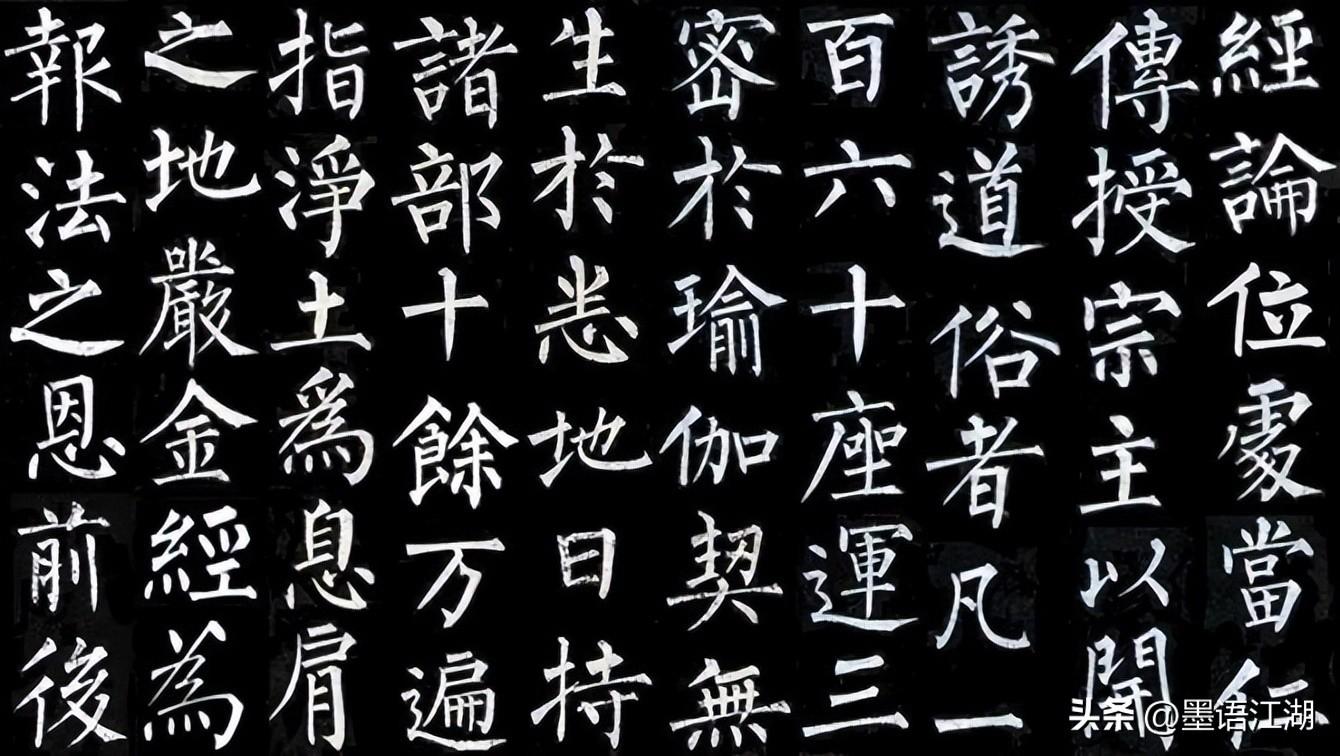 經論位處當仁
傳授宗主以開
誘道俗者凡一
百六十座運三
密於瑜伽契無
生於悉地日持
諸部十餘万遍
指淨土爲息肩
之地嚴金經為
報法之恩前後
头条 @墨语江湖